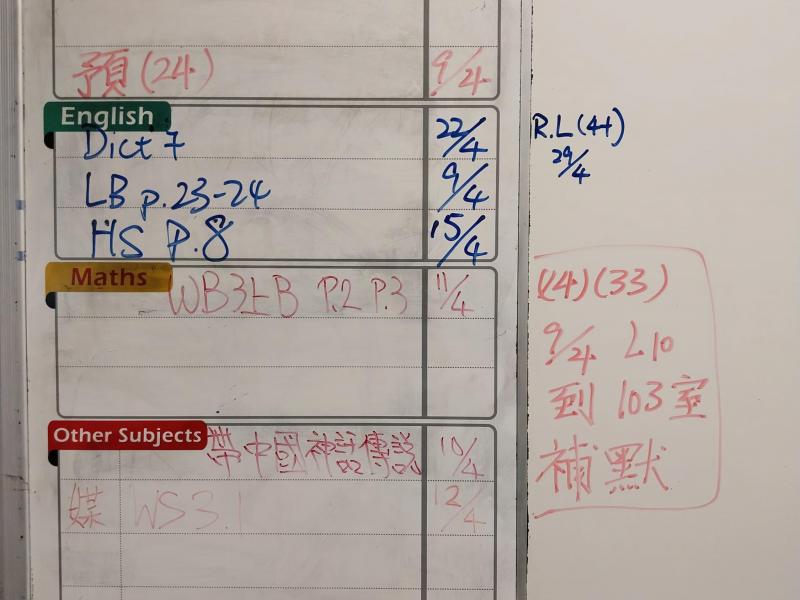 預(24) 9/4
English
Dict 7 22/4
LB p.23-24 9/4
HS P.8 15/4
R.L(4+)
29/4
Maths
WB3上B P.2 P.3 11/4
(14)(33)
9/4 L10
到 103室
補默
Other Subjects
帶中國神話傳說 10/4
媒 WS3.1 12/4